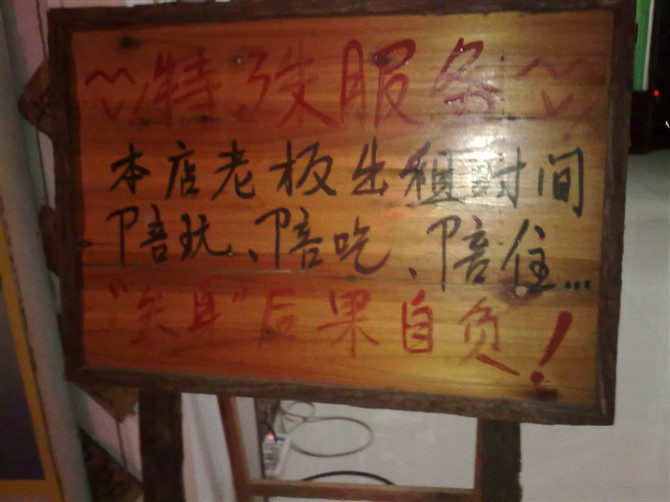 特殊服务
本店老板出租时间
陪玩、陪吃、陪住...
"失身"后果自负！